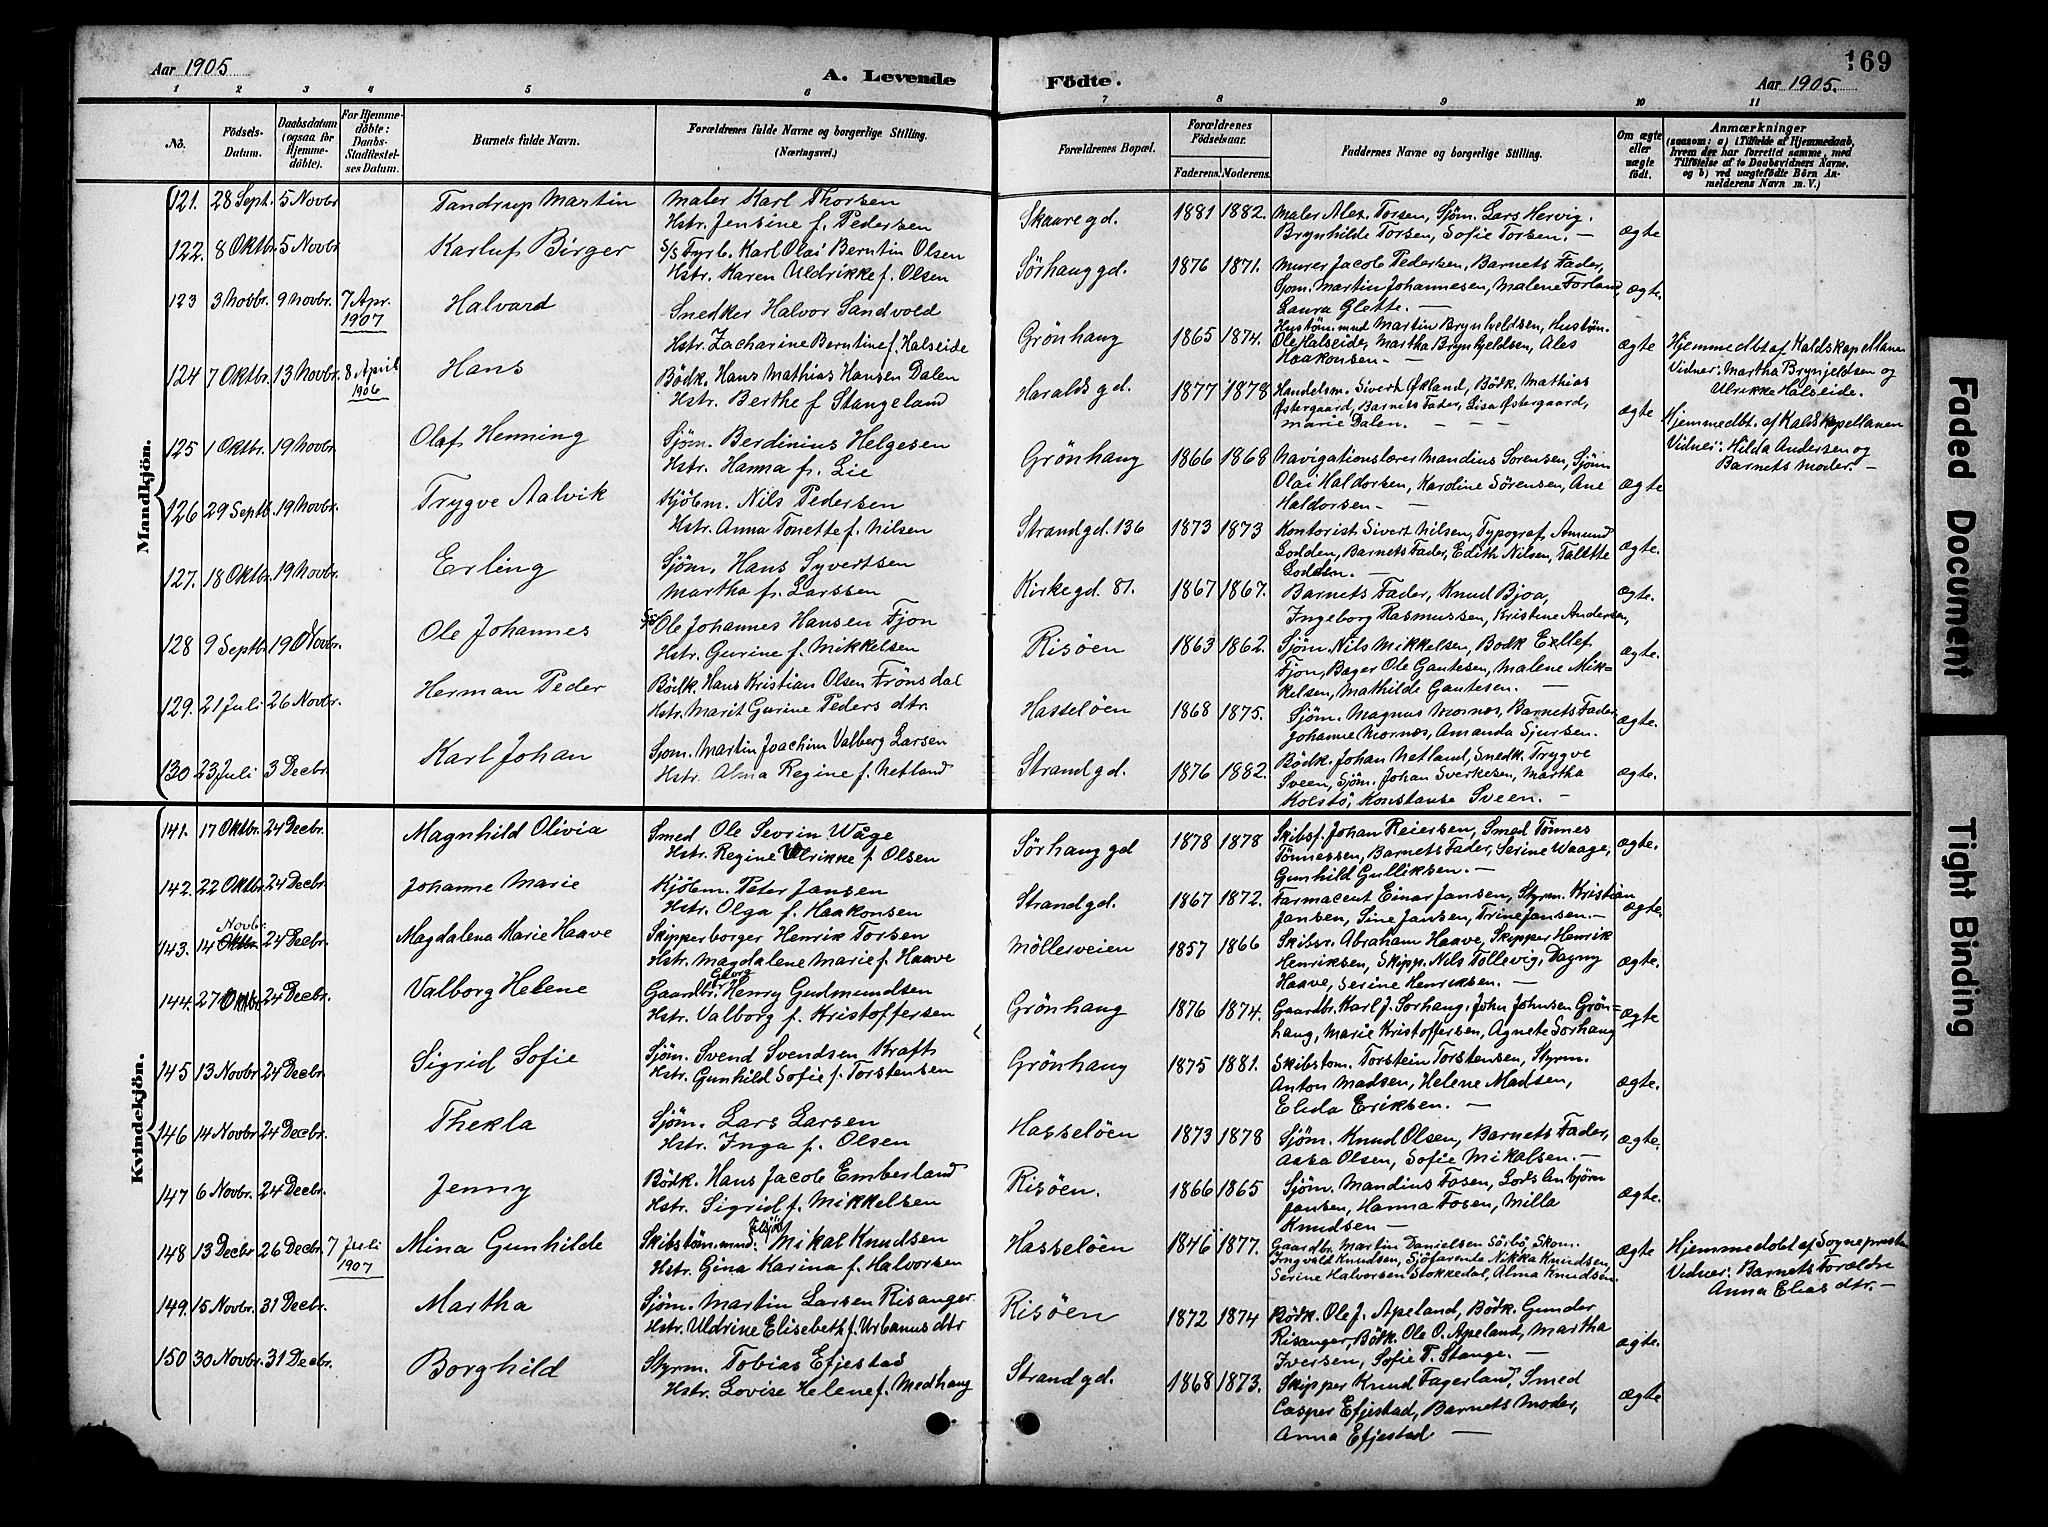 Aar 1905
A. Levende
Födte.
Aar 1905.
169
1 2 3 4 5 6 7 8 9 10 11
No.
Födsels-
Datum.
Daabsdatum
(ogsaa for
Hjemme-
döbte).
For Hjemme-
döbte:
Daabs-
Stadfæstel-
ses Datum.
Barnets fulde Navn.
Forældrenes fulde Navne og borgerlige Stilling.
(Næringsvei.)
Forældrenes Bopæl.
Forældrenes
Födselsaar.
Faderens. Moderens.
Faddernes Navne og borgerlige Stilling.
Om ægte
eller
uægte
födt.
Anmærkninger
(saasom: a) i Tilfælde af Hjemmedaab,
hvem der har forrettet samme, med
Tilföielse af to Daabsvidners Navne,
og b) ved uægtefödte Börn An-
melderens Navn m. V.)
Mandkjön.
121. 28 Sept. 5 Novbr Tandrup Martin Maler Karl Thorsen
Hstr. Jensine f. Pedersen
Skaaregd. 1881 1882. Maler Alex. Torsen, Sjöm. Lars Hervig.
Brynhilde Torsen, Sofie Torsen. — ægte
122. 8 Oktbr 5 Novbr. Karluf Birger S/S Fyrb. Karl Olai Berntin Olsen
Hstr. Karen Uldrikke f. Olsen
Sörhauggd. 1876 1871. Murer Jacob Pedersen, Barnets Fader,
Sjöm. Martin Johannesen, Malene Förland, ægte.
Laura Glette. —
123 3 Novbr. 9 Novbr. 7 Apr.
1907
Halvard Snedker Halvor Sandvold
Hstr. Zacharine Berntine f. Halseide
Grönhaug 1865 1874. Hustöm.mnd Martin Brynjeldsen, Hustöm.
Ole Halseide, Martha Brynhjeldsen, Ales
Haakonsen. — ægte
Hjemmedbt af Kaldskapellanen
Vidner: Martha Brynjeldsen og
Ulrikke Halseide.
124 7 Oktbr. 13 Novbr. 8 April
1906
Hans Bödk. Hans Mathias Hansen Dalen
Hstr. Berthe f Stangeland
Haraldsgd. 1877 1878 Handelsm. Sivert Økland, Bödk. Mathias
Østergaard, Barnets Fader, Lisa Østergaard,
Marie Dalen. — ægte
Hjemmedbt. af Kaldskapellanen
Vidner: Hilda Andersen og
Barnets Moder. —
125 1 Oktbr. 19 Novbr. Olaf Henning Sjöm. Berdinius Helgesen
Hstr. Hanna f. Lie
Grönhaug 1866 1868 Navigationslærer Mandius Sörensen, Sjöm
Olai Haldorsen, Kardine Sörensen, Ane
Haldorsen. — ægte
126 29 Septb. 19 Novbr. Trygve Aalvik Kjöbm. Nils Pedersen
Hstr. Anna Tonette f. Nilsen
Strandgd. 136 1873 1873 Kontorist Sivert Nilsen, Typograf Amund
Lodden, Barnets Fader, Edith Nilsen, Talette
Lodden. — ægte.
127. 18 Oktbr. 19 Novbr. Erling Sjöm. Hans Syvertsen
Martha f. Larssen
Kirkegd. 81. 1867 1867. Barnets Fader, Knud Bjoa,
Ingeborg Rasmussen, Kristine Andersen, ægte.
128 9 Septbr 19 Novbr. Ole Johannes Ole Johannes Hansen Fjon
Hstr. Gurine f. Mikkelsen
Risöen 1863 1862. Sjöm. Nils Mikkelsen, Bödk Ellef
Fjon, Bager Ole Gautesen, Malene Mik-
kelsen, Mathilde Gautesen. — ægte.
129. 21 Juli 26 Novbr. Herman Peder Bödk. Hans Kristian Olsen Frönsdal
Hstr. Marit Gurine Pedersdtr
Hasselöen 1868 1875. Sjöm. Magnus Mornes, Barnets Fader,
Johanne Mornæs, Amanda Sjursen. ægte.
130 23 Juli 3 Decbr. Karl Johan Sjöm. Martin Joachim Valberg Larsen
Hstr. Alma Regine f. Netland
Strandgd. 1876 1882. Bödk. Johan Netland, Snedk. Trygve
Sveen, Sjöm. Johan Sverkesen, Martha
Kolstö, Konstanse Sveen. — ægte.
Kvindekjön.
141. 17 Oktbr. 24 Decbr. Magnhild Olivia Smed Ole Sevrin Wåge
Hstr. Regine Ulrikke f. Olsen
Sörhauggd 1878 1878 Skibsf. Johan Reiersen, Smed Tönnes
Tönnessen, Barnets Fader, Serine Waage,
Gunhild Gulliksen. — ægte.
142. 22 Oktbr 24 Decbr. Johanne Marie Kjöbm. Peter Jansen
Hstr. Olga f. Haakonsen
Strandgd. 1867 1872. Farmaceut Einar Jansen, Styrm. Kristian
Jansen, Sine Jansen, Trine Jansen. — ægte.
143. 14 Oktbr. Novbr. 24 Decbr. Magdalena Marie Haave Skipperborger Henrik Torsen
Hstr. Magdalene Marie f. Haave
Möllerveien 1857 1866 Skibsr. Abraham Haave, Skipper Henrik
Henriksen, Skipp. Nils Tollevig, Dagny
Haave, Serine Henriksen. — ægte.
144. 27 Oktbr 24 Decbr. Valborg Helene Gaardbr. Georg Henry Gudmundsen
Hstr. Valborg f. Kristoffersen
Grönhaug 1876 1874. Gaardbr. Karl J. Sorhaug, John Johnsen Grön-
haug, Marie Kristoffersen, Agnete Sorhaug ægte
145 13 Novbr 24 Decbr. Sigrid Sofie Sjöm. Svend Svendsen Kraft
Hstr. Gunhild Sofie f. Torstensen
Grönhaug 1875 1881. Skibstöm. Torstein Torstensen, Styrm.
Anton Madsen, Helene Madsen,
Elida Eriksen. — ægte.
146 14 Novbr. 24 Decbr. Thekla Sjöm. Lars Larsen
Hstr. Inga f. Olsen
Hasselöen 1873 1878 Sjöm. Knud Olsen, Barnets Fader,
Assa Olsen, Sofie Mikalsen. — ægte.
147 6 Novbr. 24 Decbr. Jenny Bödk. Hans Jacob Emberland
Hstr. Sigrid f. Mikkelsen
Risöen. 1866 1865 Sjöm. Mandius Fosen, Lods Anbjörn
Jansen, Hanna Fosen, Milla
Knudsen — ægte.
148 13 Decbr 26 Decbr. 7 Juli
1907
Mina Gunhilde Skibstöm.mnd. Mikal Knudsen
Hstr. Gina Karina f. Halvorsen
Hasselöen 1846 1877. Gaardbr. Martin Danielsen Sörbö, Skom.
Ingvald Knudsen, Sjöfarende Nikka Knudsen,
Serine Halvorsen Stokkedal, Alma Knudsen. ægte
Hjemmedöbt af Sognepresten
Vidner: Barnets Forældre
Anna Eliasdtr. —
149. 15 Novbr. 31 Decbr. Martha Sjöm. Martin Larsen Risanger
Hstr. Uldrine Elisebeth f. Urbanusdtr
Risöen 1872 1874 Bödk. Ole J. Apeland, Bödk. Gunder
Risanger, Bödk. Ole O. Apeland, Martha
Iversen, Sofie T. Stange. — ægte.
150 30 Novbr. 31 Decbr. Borghild Styrm. Tobias Efjestad
Hstr. Lovise Helene f. Medhaug
Strandgd. 1868 1873. Skipper Knud Fagerland, Smed
Casper Efjestad, Barnets Moder,
Anna Efjestad — ægte
Faded Document
Tight Binding